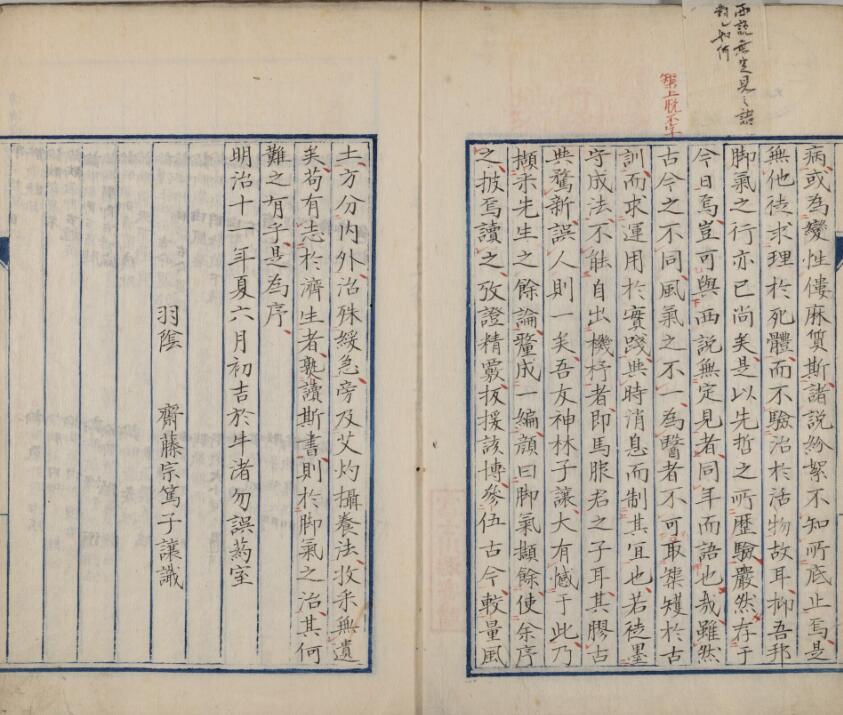 西説無定見之諸
如何
上脱不字
病或為變性僂麻質斯諸説紛絮不知所底止焉是
無他徒求理於死體而不驗治於活物故耳抑吾邦
脚氣之行亦已尚矣是以先哲之所歷驗嚴然存于
今日焉豈可與西説無定見者同年而語也哉雖然
古今之不同風氣之不一為醫者不可取榘矱於古
訓而求運用於實踐與時消息而制其宜也若徒墨
守成法不能自出機杼者即馬服君之子耳其膠古
與騖新誤人則一矣吾友神林子讓大有慽于此乃
擷朱先生之餘論釐成一編顔曰脚氣擷餘使余序
之披焉讀之攷證精覈扳援該博參伍古今較量風
土方分内外治殊緩急旁及艾灼攝養法收采無遺
矣苟有志於濟生者孰讀斯書則於脚氣之治其何
難之有乎是為序
明治十一年夏六月初吉於牛渚勿誤葯室
羽陰 齋藤宗篤子讓識